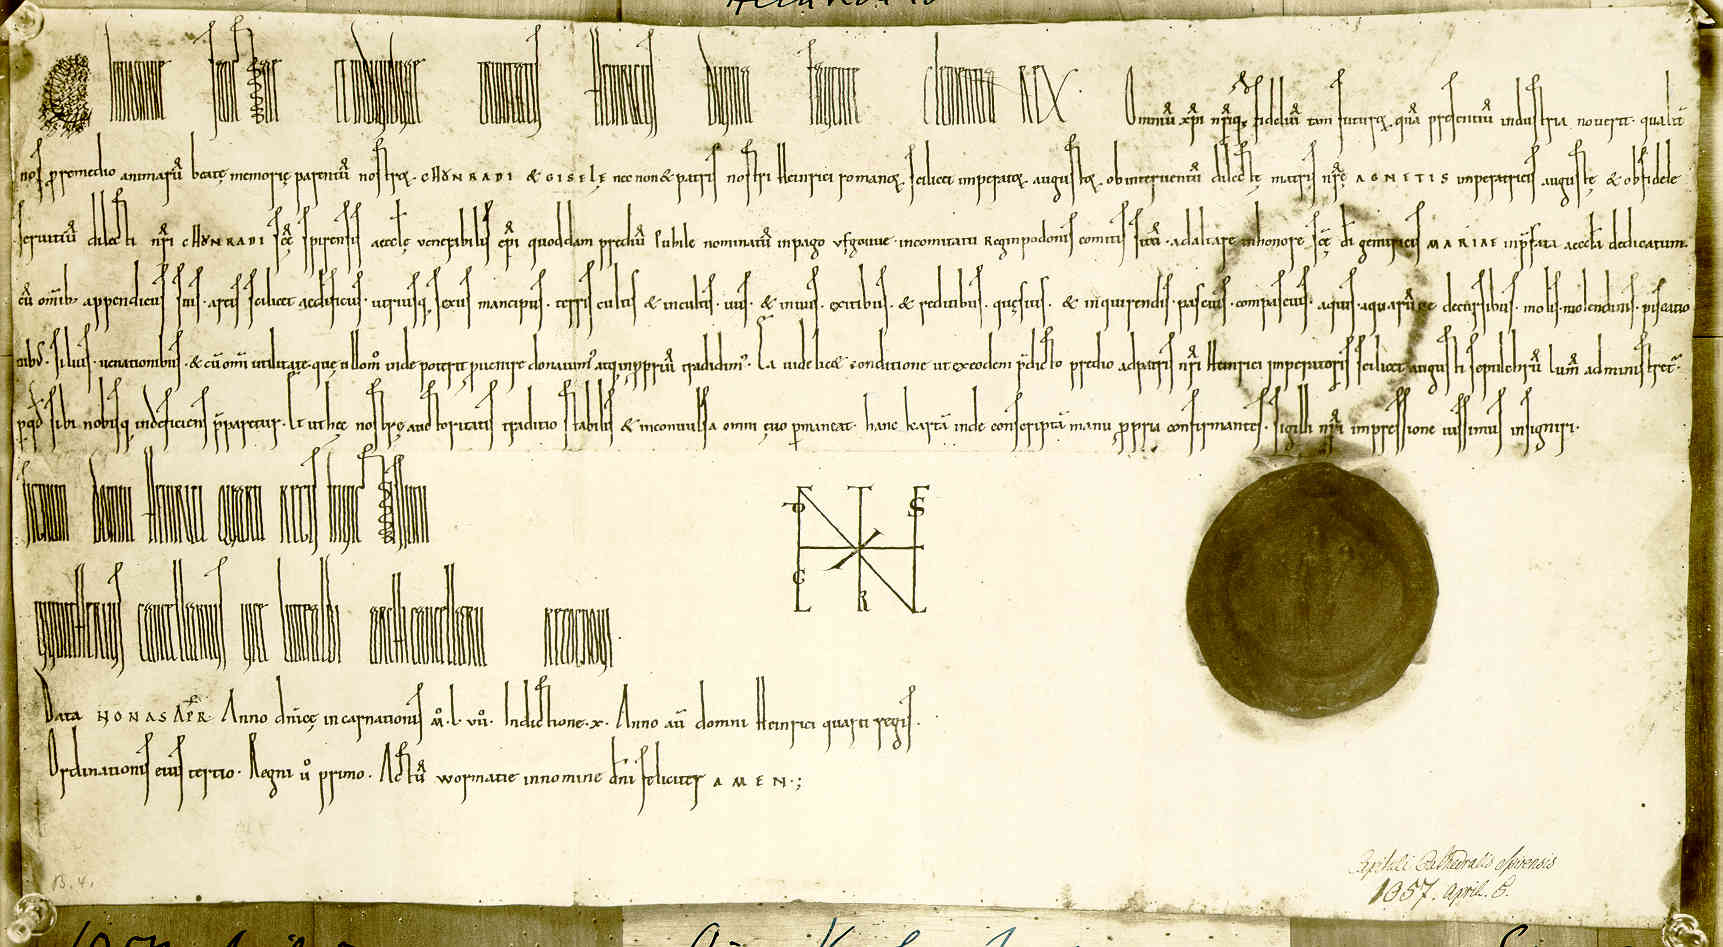 IN NOMINE SANCTAE ET INDIVIDUAE TRINITATIS HEINRICUS DIVINA FAVENTE CLEMENTIA REX. Omniū xp̄i nr̄iq; fideliū tam futurorꝝ quā presentiū industria noverit. qualit̄
nos ꝓ remedio animarū beatę memorię parentū nostrorꝝ. CHŎNRADI & GISELĘ nec non & patris nostri Heinrici romanorꝝ scilicet imperatorꝝ augustorꝝ. ob interventū dilectę matris nrę̄ AGNETIS imperatricis augustę & ob fidele
servitiū dilecti nr̄i CHŎNRADI scę̄ spirensis aecclę venerabilis ep̄i quoddam prediū Lubile nominatū in pago ufgovue. in comitatu Reginpodonis comitis sitū. ad altare in honore scę̄ dī genitricis MARIAE in p̄fata aeccła dedicatum.
cū om̄ib; appendiciis suis. areis scilicet aedificiis. utriusq; sexus mancipiis. terris cultis & incultis. viis. & inviis. exitibus. & reditibus. quęsitis. & inquirendis. pascuis. compascuis. aquis. aquarūve decursibus. molis. molendinis. piscatio
nib;. silvis. venationibus. & cū om̄i utilitate. quę ullom̊ inde poterit ꝓvenire donavim; atq; in ꝓpriū tradidim;. Ea videlicet conditione ut ex eodem p̄dicto predio ad patris nr̄i Heinrici imperatoris scilicet augusti sepulchrū lum̄ administret̄.
sibi nobisq; indeficiens p̄paretur. Et ut hęc nostrę auctoritatis traditio stabilis & inconvulsa omni ęvo ꝑmaneat. hanc kartā inde conscriptā manu ꝓpria confirmantes. sigilli nr̄i impressione iussimus insigniri.
SIGNUM DOMNI HEINRICI QUARTI REGIS
GVNTHERIUS CANCELLARIUS VICE LIUTBALDI ARCHICANCELLARII RECOGNOVI
Data NONAS APR. Anno dn̄icę incarnationis M̊. L. VII̊. Indictione. X. Anno aū domni Heinrici quarti regis.
Ordinationis eius tertio. Regni v̊ primo. Actū wormatie in nomine dn̄i feliciter AMEN.;
B. 4.
Capituli Cathedralis Spirensis
1057. April. 5.